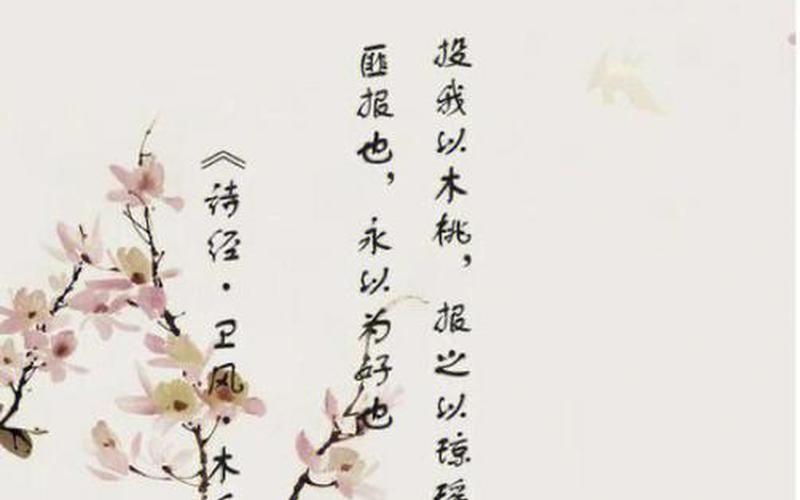 投我以木桃，报之以琼瑶
匪报也，永以为好也
《诗经·卫风·木